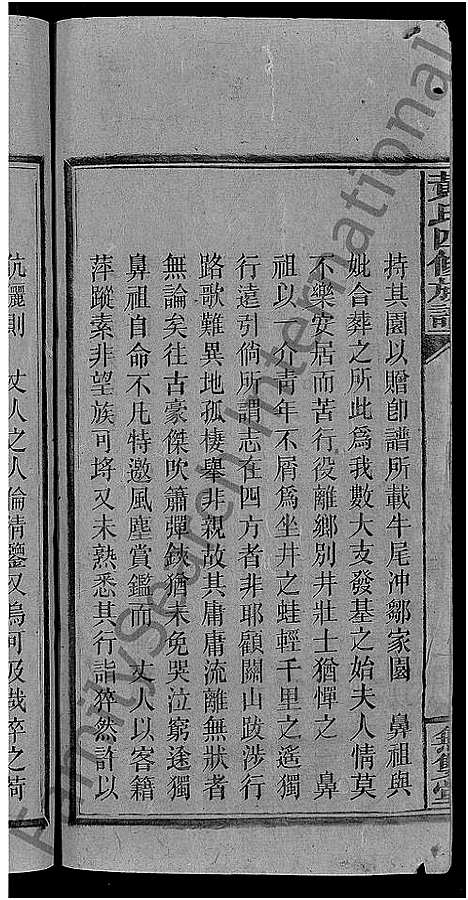 黄氏四修族譜
無雙堂
持其園以贈卽譜所載牛尾沖鄒家園 鼻祖與
妣合葬之所此爲我數大支發基之始夫人情莫
不樂安居而苦行役離鄉別井壯士猶憚之 鼻
祖以一介青年不屑爲坐井之蛙輕千里之遙獨
行遠引倘所謂志在四方者非耶顧關山跋涉行
路歌難異地孤棲舉非親故其庸庸流離無狀者
無論矣往古豪傑吹簫彈鋏猶未免哭泣窮途獨
鼻祖自命不凡特邀風塵賞鑑而 丈人以客籍
萍蹤素非望族可埓又未熟悉其行詣猝然許以
伉儷則 丈人之人倫精鑒又烏可及哉猝之荷
FamilySearch International